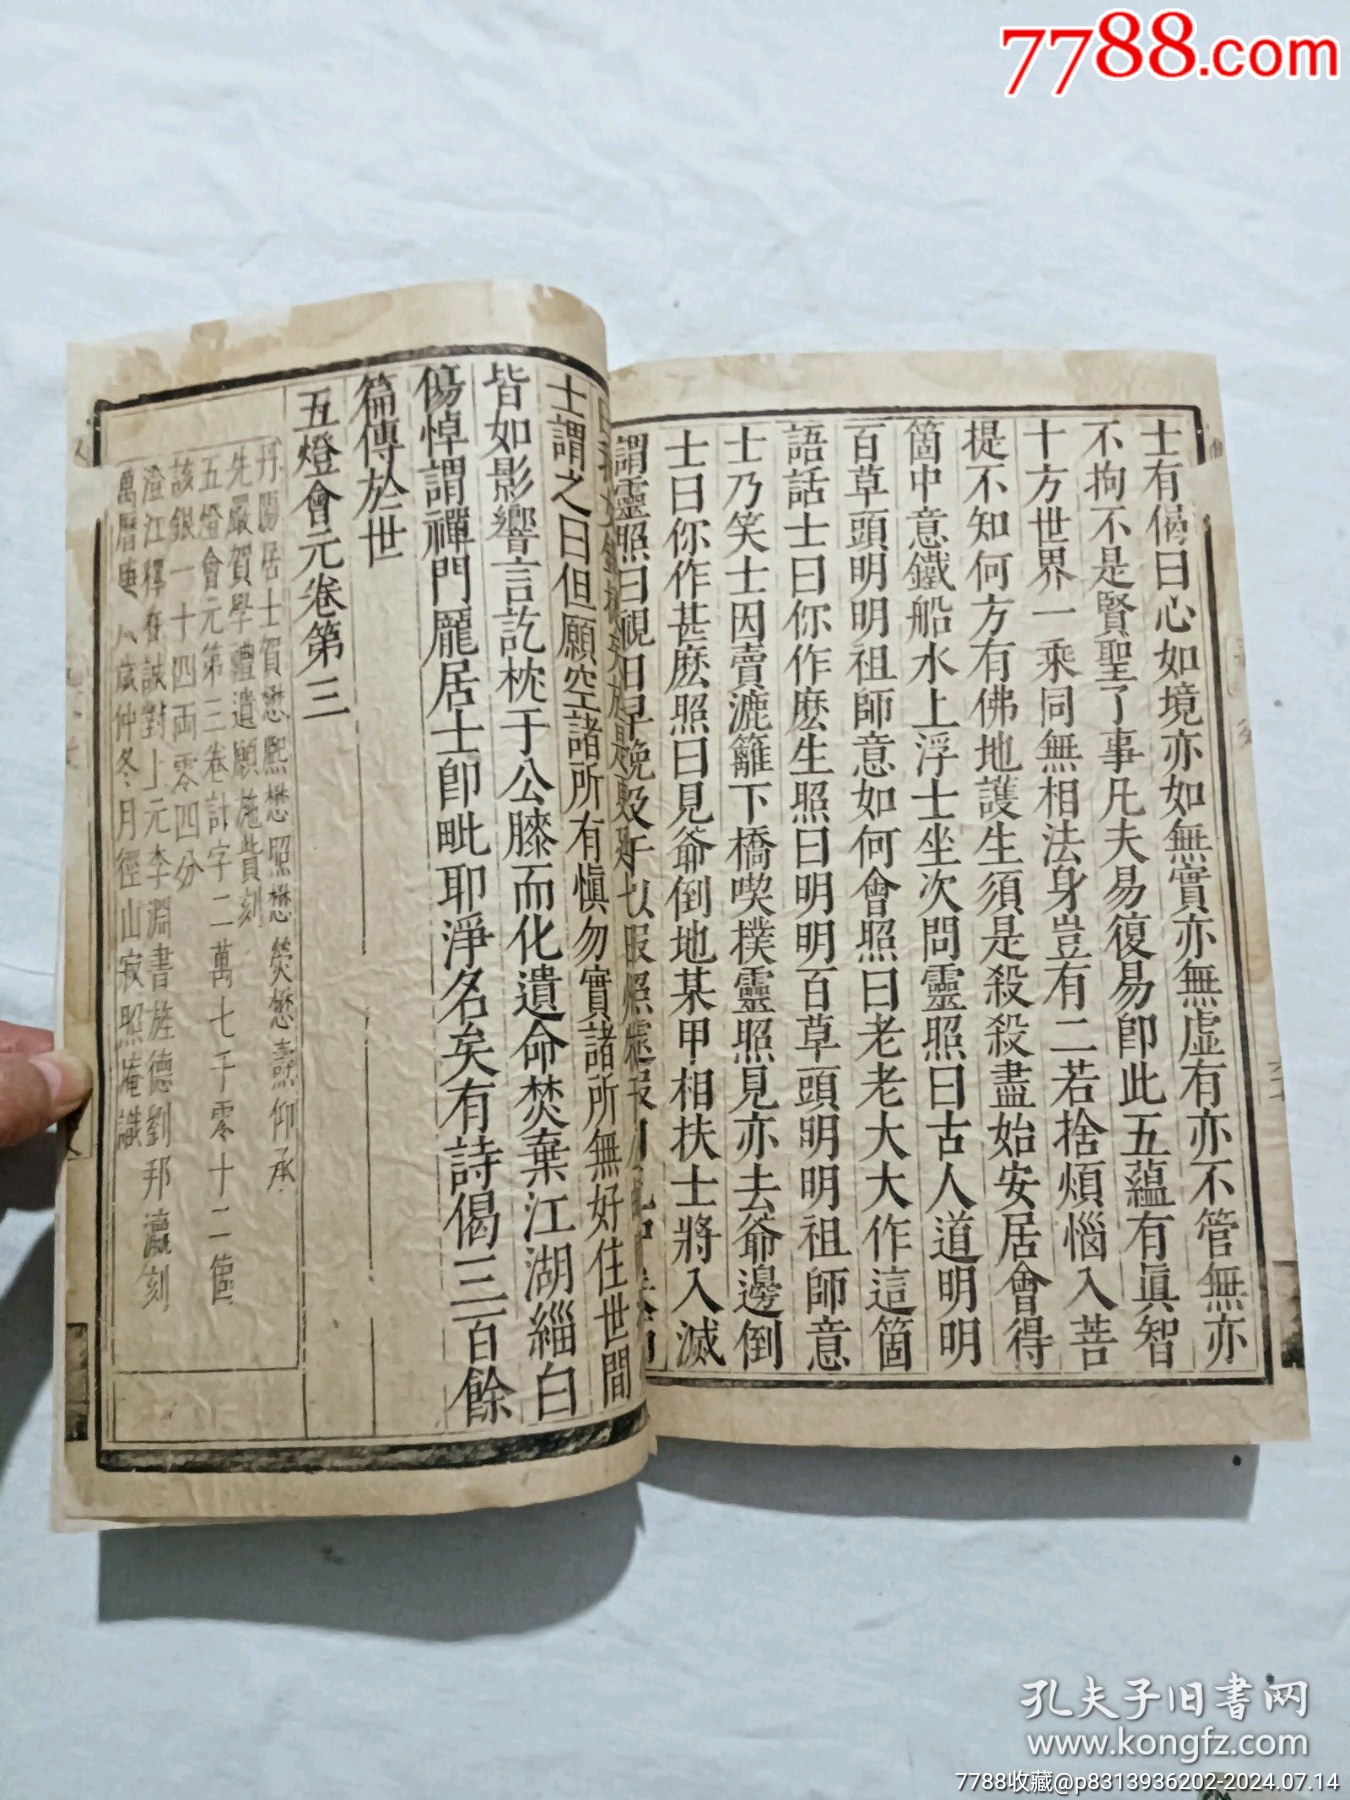 7788.com
士有偈曰心如境亦如無實亦無虛有亦不管無亦
不拘不是賢聖了事凡夫易復易卽此五蘊有眞智
十方世界一乘同無相法身豈有二若捨煩惱入菩
提不知何方有佛地護生須是殺殺盡始安居會得
箇中意鐵船水上浮士坐次問靈照曰古人道明明
百草頭明明祖師意如何會照曰老老大大作這箇
語話士曰你作麽生照曰明明百草頭明明祖師意
士乃笑士因賣漉籬下橋喫撲靈照見亦去爺邊倒
士曰你作甚麽照曰見爺倒地某甲相扶士將入滅
謂靈照曰視日早晚及午以報照遽報
士謂之曰但願空諸所有愼勿實諸所無好住世間
皆如影響言訖枕于公膝而化遺命焚棄江湖緇白
傷悼謂禪門龐居士卽毗耶淨名矣有詩偈三百餘
篇傳於世
五燈會元卷第三
丹陽居士賀懋熙懋照懋熒懋燾仰承
先嚴賀學禮遺願施貲刻
五燈會元第三卷計字二萬七千零十二箇
該銀一十四兩零四分
澄江釋在誠對上元李淵書旌德劉邦瀛刻
萬曆庚歲仲冬月徑山寂照庵識
孔夫子旧书网
www.kongfz.com
7788收藏@p8313936202-2024.07.14